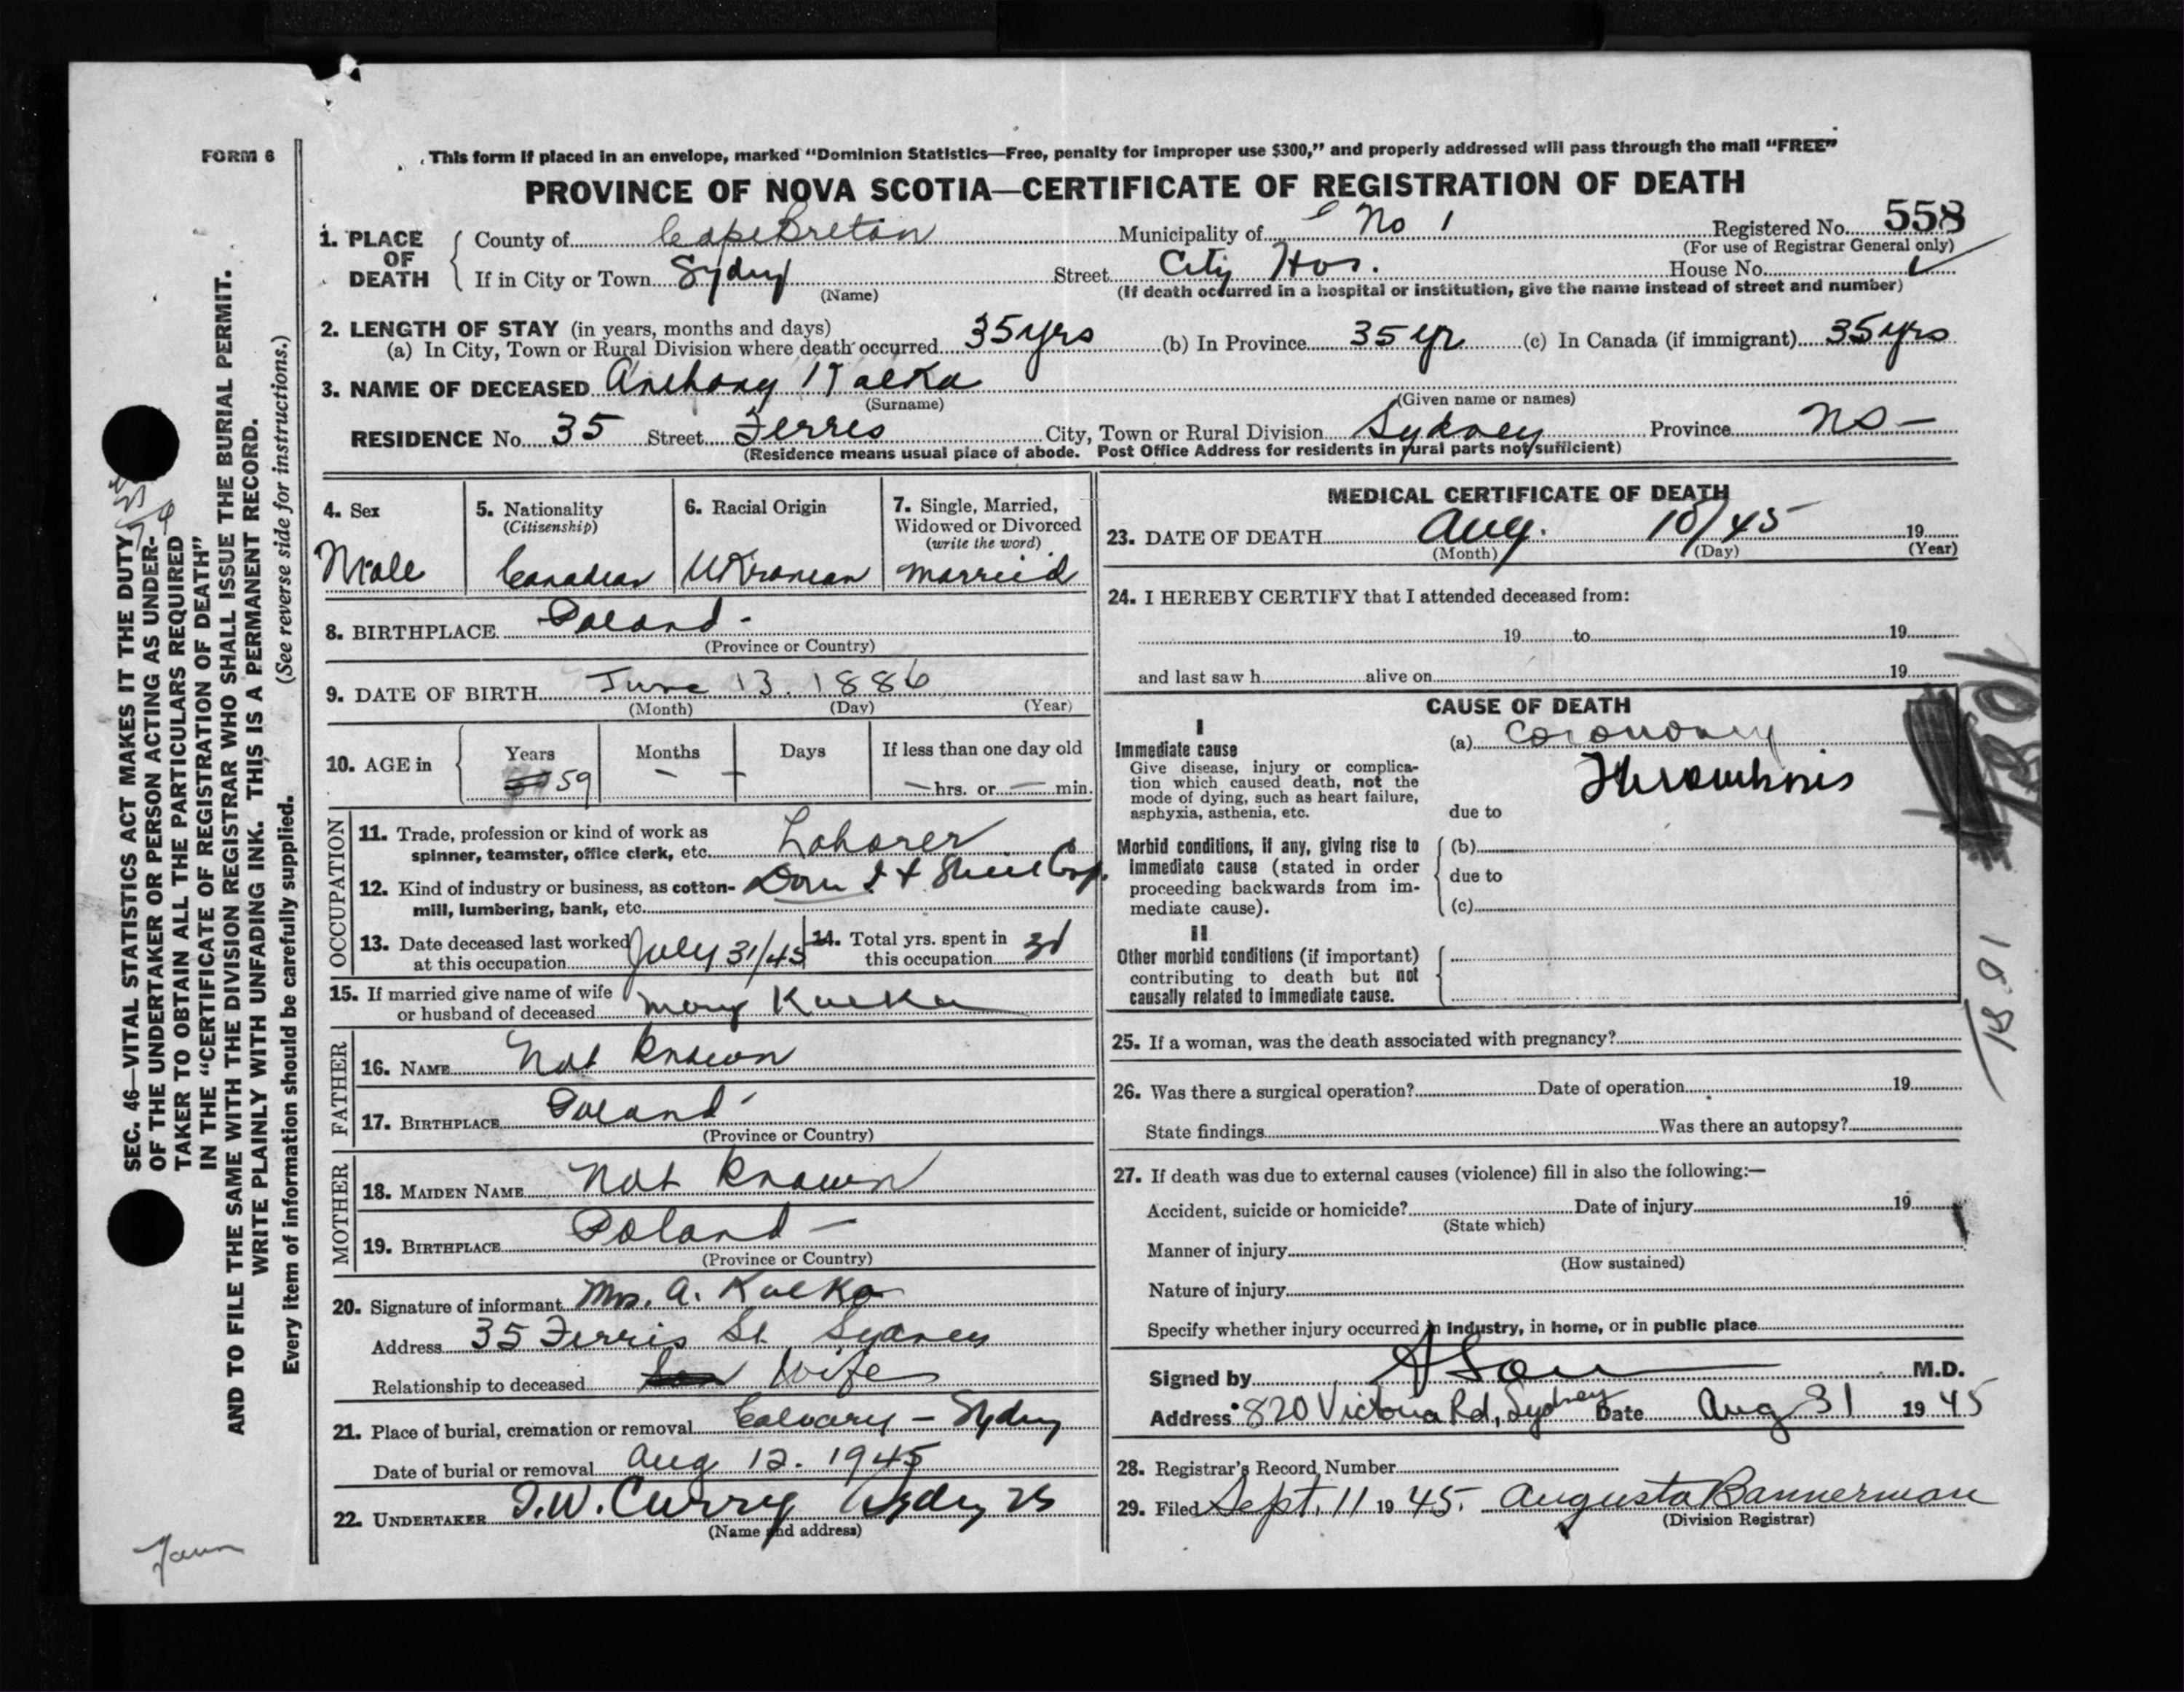 FORM 6
This form if placed in an envelope, marked “Dominion Statistics—Free, penalty for improper use $300,” and properly addressed will pass through the mail “FREE”
PROVINCE OF NOVA SCOTIA—CERTIFICATE OF REGISTRATION OF DEATH
1. PLACE OF DEATH County of Cape Breton Municipality of No 1 Registered No. 558
(For use of Registrar General only)
If in City or Town Sydney Street City Hos. House No.
(Name) (If death occurred in a hospital or institution, give the name instead of street and number)
2. LENGTH OF STAY (in years, months and days)
(a) In City, Town or Rural Division where death occurred 35 yrs (b) In Province 35 yr (c) In Canada (if immigrant) 35 yrs
3. NAME OF DECEASED Anthony Kulka
(Surname) (Given name or names)
RESIDENCE No. 35 Street Ferris City, Town or Rural Division Sydney Province NS—
(Residence means usual place of abode. Post Office Address for residents in rural parts not sufficient)
4. Sex
Male
5. Nationality
(Citizenship)
Canadian
6. Racial Origin
Ukranian
7. Single, Married,
Widowed or Divorced
(write the word)
married
8. BIRTHPLACE Poland -
(Province or Country)
9. DATE OF BIRTH June 13. 1886
(Month) (Day) (Year)
10. AGE in Years Months Days If less than one day old
59 – – – hrs. or — min.
OCCUPATION
11. Trade, profession or kind of work as
spinner, teamster, office clerk, etc. Laborer
12. Kind of industry or business, as cotton-
mill, lumbering, bank, etc. Dom I & Steel Corp.
13. Date deceased last worked
at this occupation July 31/45
14. Total yrs. spent in
this occupation
15. If married give name of wife
or husband of deceased Mary Kulka
FATHER
16. NAME Not Known
17. BIRTHPLACE Poland -
(Province or Country)
MOTHER
18. MAIDEN NAME Not Known
19. BIRTHPLACE Poland —
(Province or Country)
20. Signature of informant Mrs. A. Kulka
Address 35 Ferris St. Sydney
Relationship to deceased Wife
21. Place of burial, cremation or removal Calvary – Sydney
Date of burial or removal Aug 12. 1945
22. UNDERTAKER T.W. Curry Sydney NS
(Name and address)
MEDICAL CERTIFICATE OF DEATH
23. DATE OF DEATH Aug. 10/45 19
(Month) (Day) (Year)
24. I HEREBY CERTIFY that I attended deceased from:
19 to 19
and last saw h alive on 19
CAUSE OF DEATH
I
Immediate cause
Give disease, injury or complica-
tion which caused death, not the
mode of dying, such as heart failure,
asphyxia, asthenia, etc.
(a) Coronary
Thrombosis
due to
Morbid conditions, if any, giving rise to
immediate cause (stated in order
proceeding backwards from im-
mediate cause).
(b)
due to
(c)
II
Other morbid conditions (if important)
contributing to death but not
causally related to immediate cause.
25. If a woman, was the death associated with pregnancy?
26. Was there a surgical operation? Date of operation 19
State findings Was there an autopsy?
27. If death was due to external causes (violence) fill in also the following:—
Accident, suicide or homicide? Date of injury 19
(State which)
Manner of injury
(How sustained)
Nature of injury
Specify whether injury occurred in industry, in home, or in public place
Signed by M.D.
Address 820 Victoria Rd, Sydney Date Aug 31 1945
28. Registrar's Record Number
29. Filed Sept. 11 1945. Augusta Bannerman
(Division Registrar)
SEC. 46—VITAL STATISTICS ACT MAKES IT THE DUTY
OF THE UNDERTAKER OR PERSON ACTING AS UNDER-
TAKER TO OBTAIN ALL THE PARTICULARS REQUIRED
IN THE “CERTIFICATE OF REGISTRATION OF DEATH”
AND TO FILE THE SAME WITH THE DIVISION REGISTRAR WHO SHALL ISSUE THE BURIAL PERMIT.
WRITE PLAINLY WITH UNFADING INK. THIS IS A PERMANENT RECORD.
Every item of information should be carefully supplied. (See reverse side for instructions.)